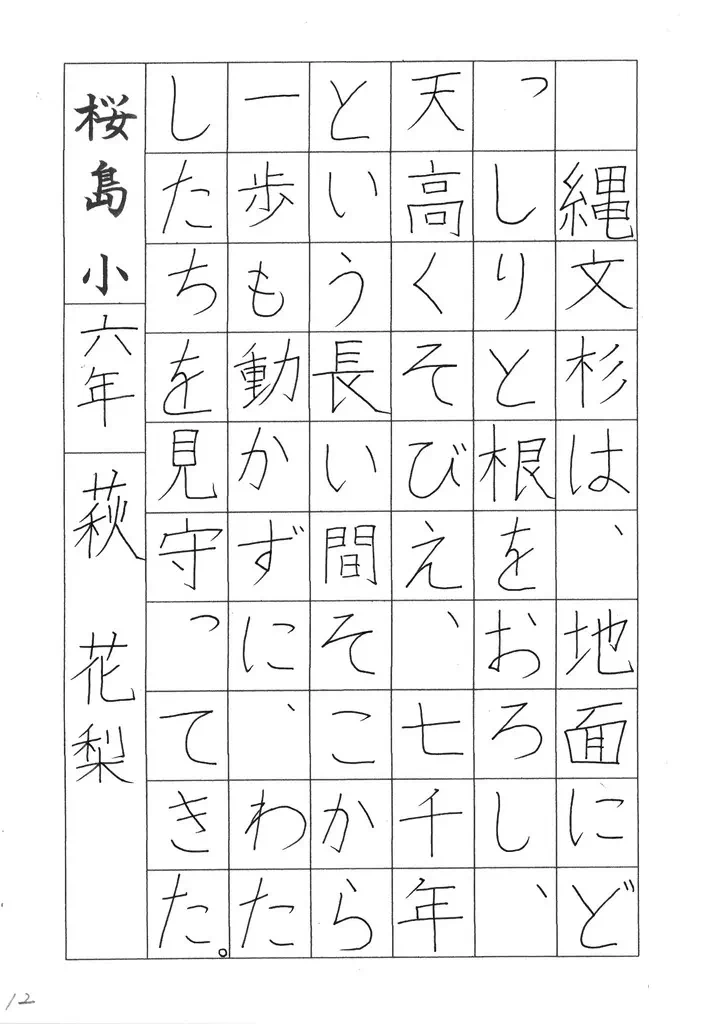 縄文杉は、地面にど
っしりと根をおろし、
天高くそびえ、七千年
という長い間そこから
一歩も動かずに、わた
したちを見守ってきた。
桜島小六年 萩 花梨
12